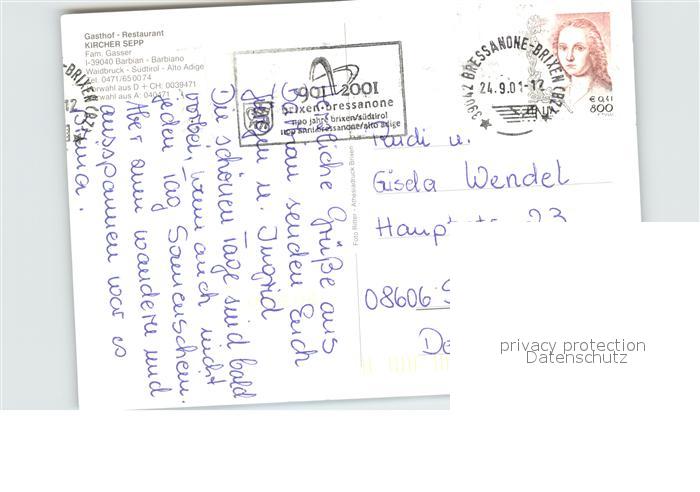 Gasthof - Restaurant
KIRCHER SEPP
Fam. Gasser
I-39040 Barbian - Barbiano
Waidbruck - Südtirol - Alto Adige
Tel. 0471/650074
Vorwahl aus D + CH: 0039471
Vorwahl aus A: 040471
901 2001
brixen-bressanone
1100 jahre brixen/südtirol
1100 anni bressanone/alto adige
39042 BRESSANONE-BRIXEN (BZ)
24.9.01-12
€ 0,41
800
Herzliche Grüße aus
Barbian senden Euch
Jürgen u. Ingrid
Die schönen Tage sind bald
vorbei, wenn auch nicht
jeden Tag Sonnenschein.
Aber zum wandern und
ausspannen war es
prima.
Foto Ritter - Athesiadruck Brixen
Rudi u.
Gisela Wendel
Haupts 23
08606
De
privacy protection
Datenschutz